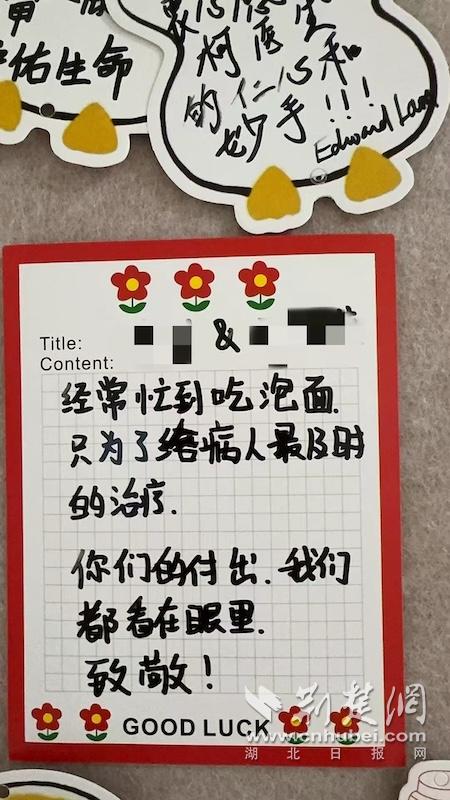 佑生命
柯医生
的仁心和
妙手!!!
Edward Lam
Title:
&
Content:
经常忙到吃泡面.
只为了给病人最及时
的治疗.
你们的付出.我们
都看在眼里.
致敬!
GOOD LUCK
荆楚网
www.cnhubei.com
湖北日报网